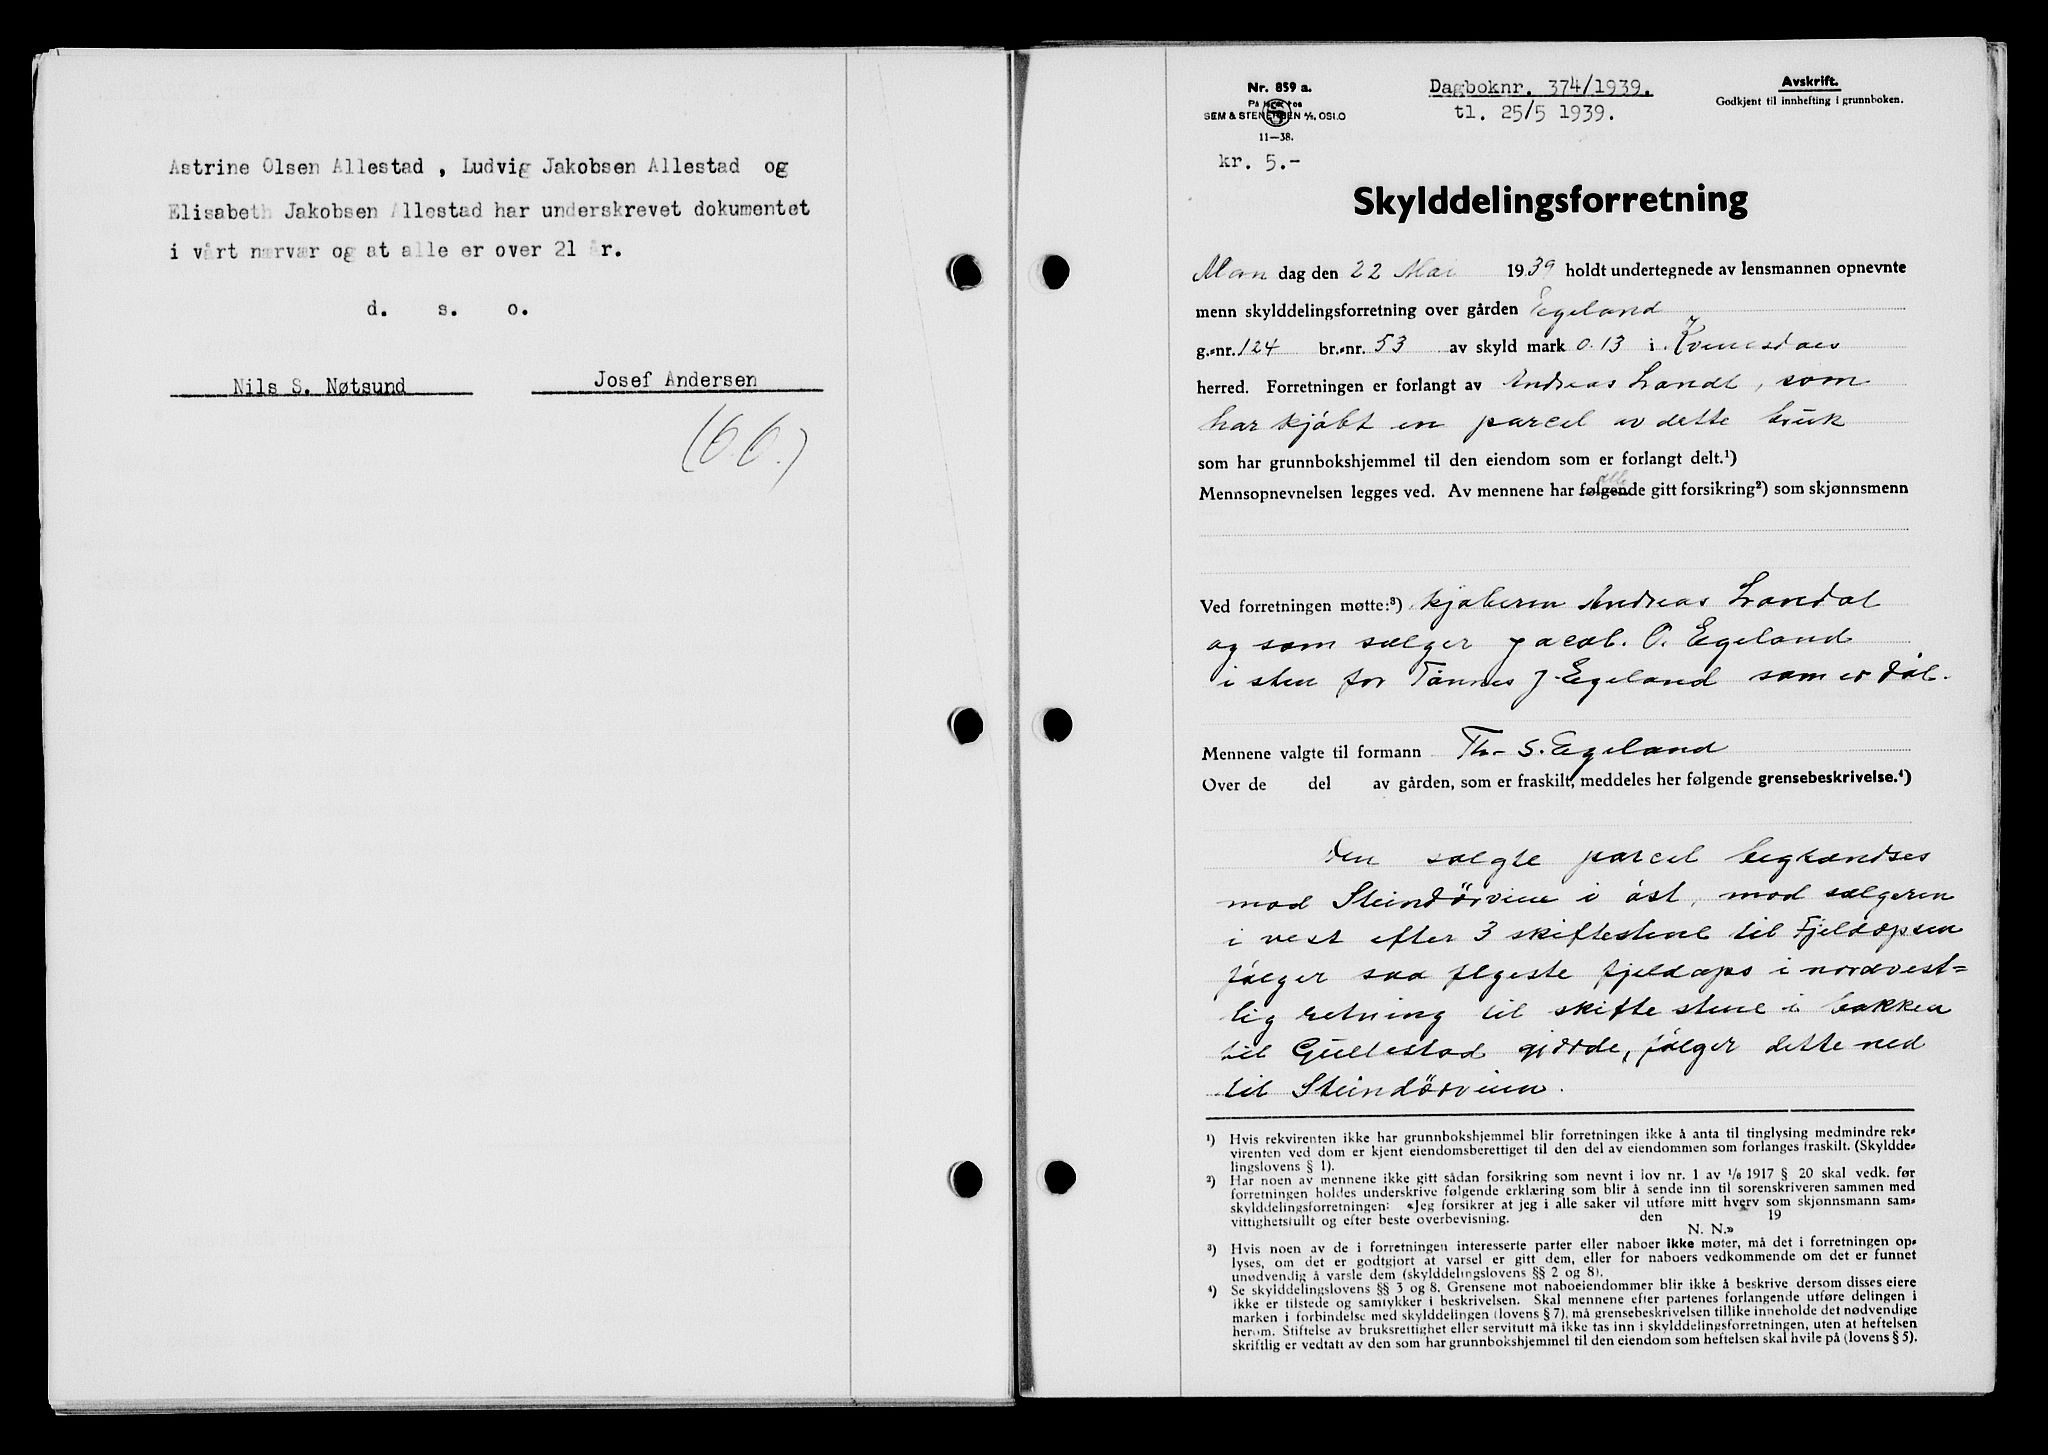 Astrine Olsen Allestad , Ludvig Jakobsen Allestad og
Elisabeth Jakobsen Allestad har underskrevet dokumentet
i vårt nærvær og at alle er over 21 år.
d. s. o.
Nils S. Nøtsund Josef Andersen
(6 6.)
Nr. 859 a.
På lager hos
SEM & STENERSEN A/S, OSLO
11—38.
kr. 5.-
Dagboknr. 374/1939.
tl. 25/5 1939.
Avskrift.
Godkjent til innhefting i grunnboken.
Skylddelingsforretning
Man dag den 22 Mai 1939 holdt undertegnede av lensmannen opnevnte
menn skylddelingsforretning over gården Egeland
g.=nr. 124 br.=nr. 53 av skyld mark 0.13 i Kvinesdal
herred. Forretningen er forlangt av Andreas Landal, som
har kjøbt en parcel av dette bruk
som har grunnbokshjemmel til den eiendom som er forlangt delt.¹)
Mennsopnevnelsen legges ved. Av mennene har følgende alle gitt forsikring²) som skjønnsmenn
Ved forretningen møtte:³) kjøberen Andreas Landal
og som sælger Jacob. O. Egeland
i sten for Tønnes J. Egeland som er død.
Mennene valgte til formann Th. S. Egeland
Over de del av gården, som er fraskilt, meddeles her følgende grensebeskrivelse.⁴)
Den solgte parcel begrændses
mod Steindörveien i øst, mod sælgeren
i vest efter 3 skiftestene til Fjeldopsen
følger saa flgeste fjeldops i nordvest=
lig retning til skifte stene i bakken
til Gullestad gjærde, følger dette ned
til Steindörveien.
¹) Hvis rekvirenten ikke har grunnbokshjemmel blir forretningen ikke å anta til tinglysing medmindre rek=
virenten ved dom er kjent eiendomsberettiget til den del av eiendommen som forlanges fraskilt. (Skyldde=
lingslovens § 1).
²) Har noen av mennene ikke gitt sådan forsikring som nevnt i lov nr. 1 av 1/6 1917 § 20 skal vedk. før
forretningen holdes underskrive følgende erklæring som blir å sende inn til sorenskriveren sammen med
skylddelingsforretningen: «Jeg forsikrer at jeg i alle saker vil utføre mitt hverv som skjønnsmann sam=
vittighetsfullt og efter beste overbevisning. den 19
N. N.»
³) Hvis noen av de i forretningen interesserte parter eller naboer ikke møter, må det i forretningen op=
lyses, om det er godtgjort at varsel er gitt dem, eller for naboers vedkommende om det er funnet
unødvendig å varsle dem (skylddelingslovens §§ 2 og 8).
⁴) Se skylddelingslovens §§ 3 og 8. Grensene mot naboeiendommer blir ikke å beskrive dersom disses eiere
ikke er tilstede og samtykker i beskrivelsen. Skal mennene efter partenes forlangende utføre delingen i
marken i forbindelse med skylddelingen (lovens § 7), må grensebeskrivelsen tillike inneholde det nødvendige
herom. Stiftelse av bruksrettighet eller servitutt må ikke tas inn i skylddelingsforretningen, uten at heftelsen
skriftlig er vedtatt av den som har grunnbokshjemmel til den eiendom som heftelsen skal hvile på (lovens § 5).